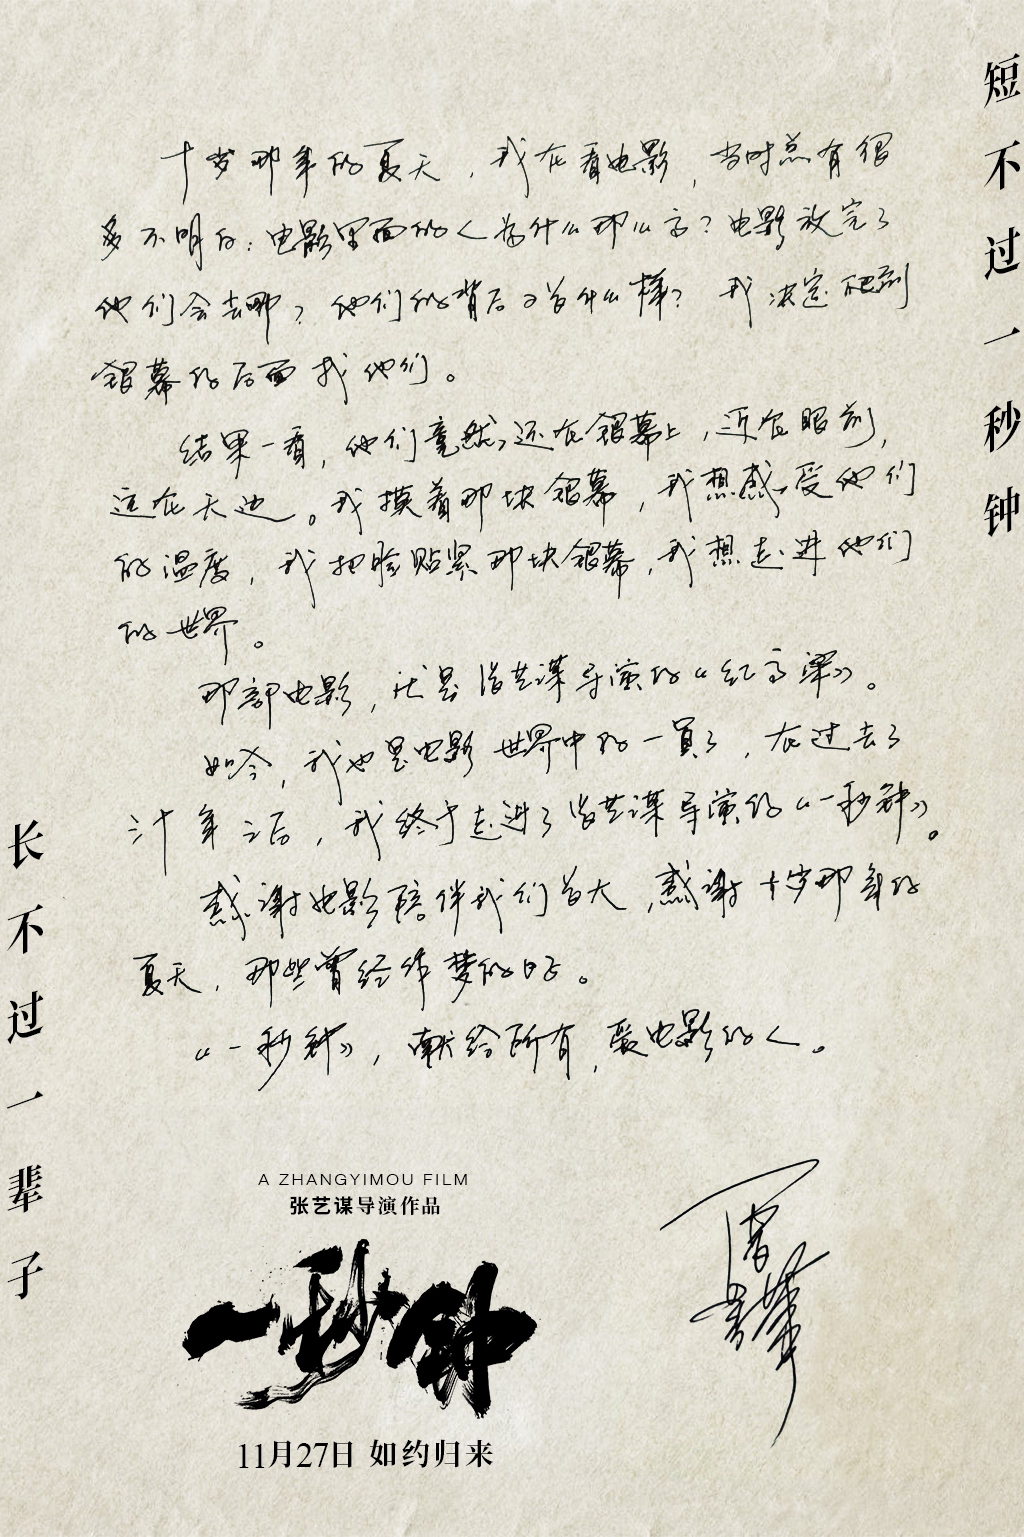 短不过一秒钟
十岁那年的夏天，我在看电影，当时总有很
多不明白：电影里面的人为什么那么高？电影放完了
他们会去哪？他们的背后又为什么样？我决定爬到
银幕的后面找他们。
结果一看，他们竟然还在银幕上，近在眼前，
远在天边。我摸着那块银幕，我想感受他们
的温度，我把脸贴紧那块银幕，我想走进他们
的世界。
那部电影，就是张艺谋导演的《红高粱》。
如今，我也是电影世界中的一員了，在过去了
三十年之后，我终于走进了张艺谋导演的《一秒钟》。
感谢电影陪伴我们长大，感谢十岁那年的
夏天，那些曾经作梦的日子。
《一秒钟》，献给所有爱电影的人。
长不过一辈子
A ZHANGYIMOU FILM
张艺谋导演作品
一秒钟
11月27日 如约归来